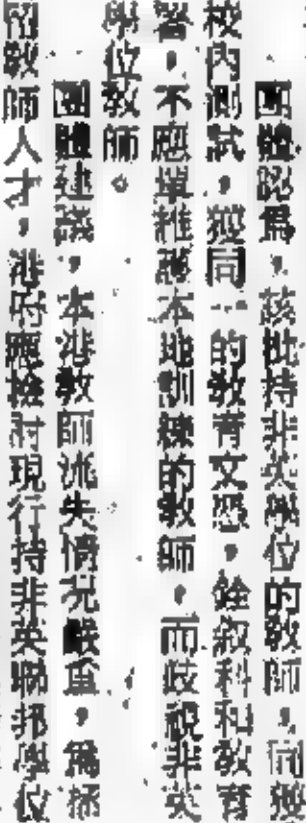 團體認爲,該批持非英學位的敎師,同獲
校內測試,獲同一的敎育文憑,銓叙科和敎育
署,不應單維護本地訓練的敎師,而歧視非英
學位敎師。
團體建議,本港敎師流失情況嚴重,爲
敎師人才,港府應檢討現行持非英聯邦學位